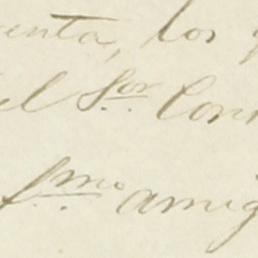 enta, los
el Sor Con
Smo amig